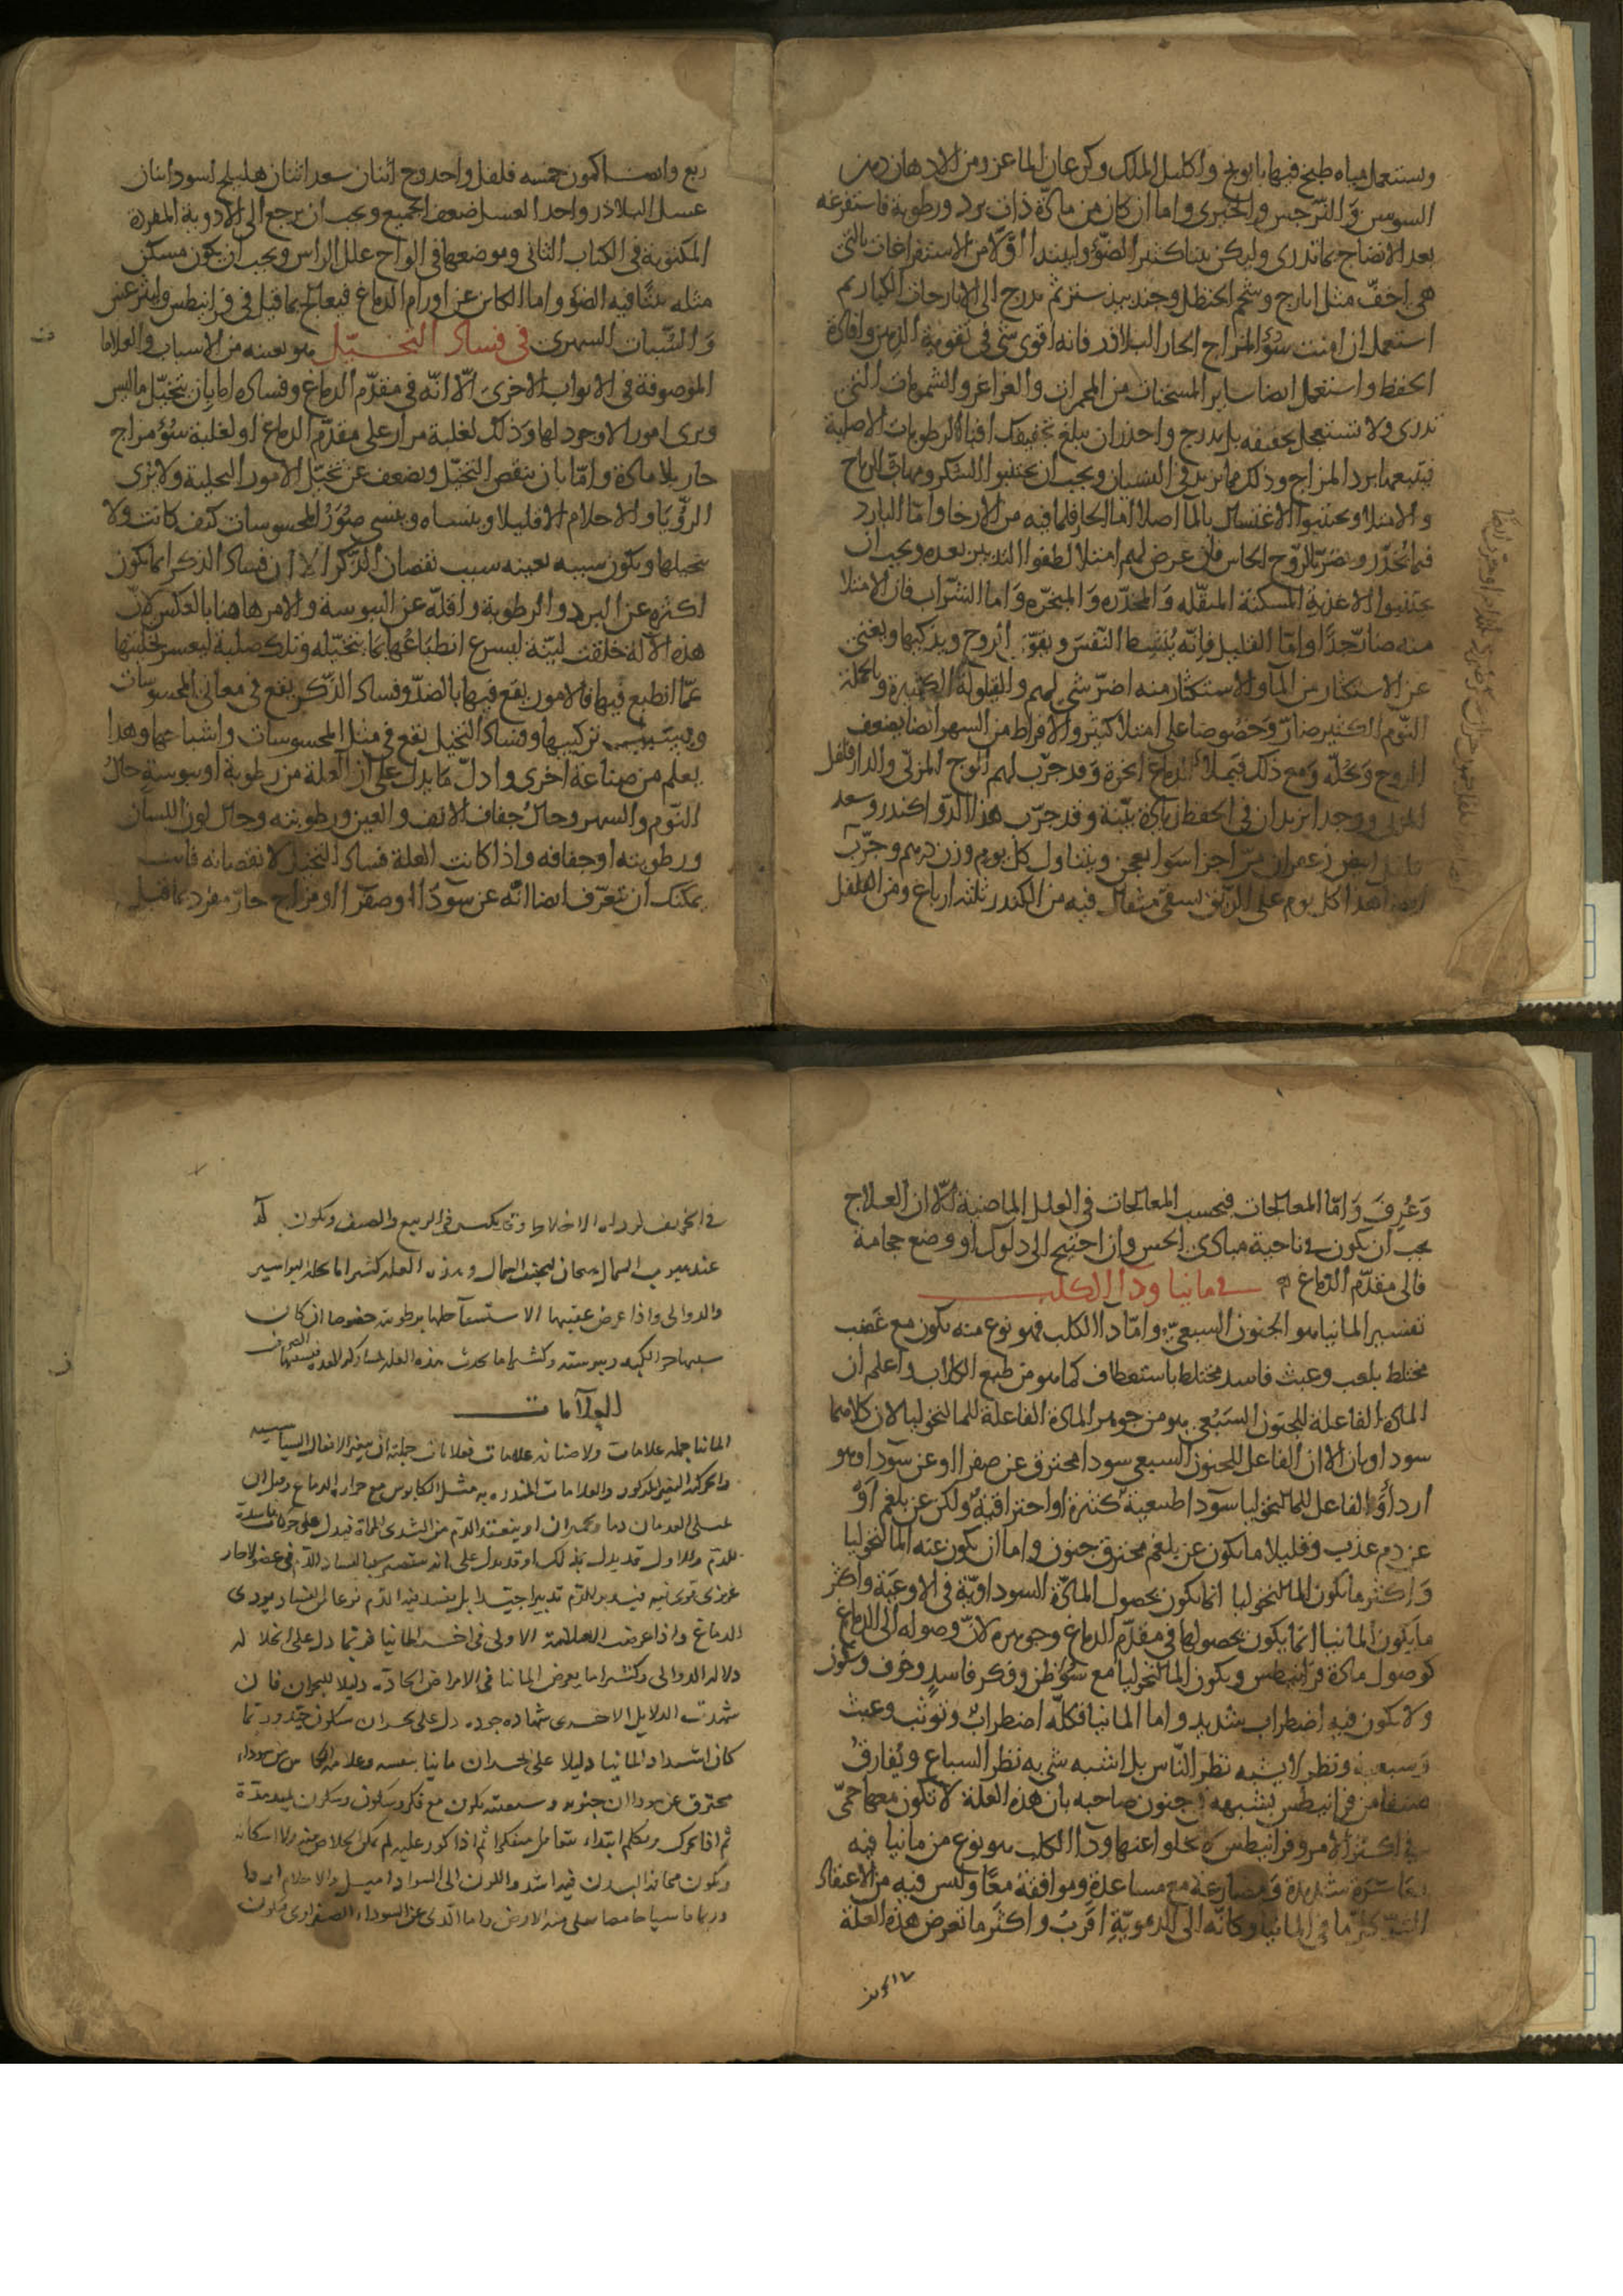 ويستعمل مياه طبخ فيها بابونج واكليل الملك وكرعان الماعز ومن الادهان دهن
السوسن والنرجس والخيرى واما ان كان من مادة ذات برد ورطوبة فاستفرغه
بعد الانضاج بما تدرى وليكن بيتا كثير الضوء وليبدا اولا من الاستفراغات بالتى
هى اخف مثل ايارج وشحم الحنظل وجندبيدستر ثم تدرج الى الايارجات الكبار ثم
استعمل ان امنت سوء المزاج الحار البلادر فانه اقوى شى فى تقوية الذهن وافادة
الحفظ واستعمل ايضا ساير المسخنات من المحمرات والغراغر والشمومات التى
تدرى ولا تستعجل بتجفيفه بل بتدرج واحذر ان يبلغ تجفيفك افناء الرطوبات الاصلية
فيتبعها برد المزاج وذلك مما يزيد فى النسيان ويجب ان يجتنبوا السكر ومهاب الرياح
والامتلا ويجتنبوا الاغتسال بالماء اصلا اما الحار فلما فيه من الارخاء واما البارد
فبما يخدر ويضر بالروح الحاس فان عرض لهم امتلا لطفوا التدبير بعده ويجب ان
يجتنبوا الاغذية المسكنة المثقله والمخدره والمبخره واما الشراب فان الامتلا
منه ضار جدا واما القليل فانه ينشط النفس ويقوى الروح ويذكيها ويغنى
عن الاستكثار من الماء والاستكثار منه اضر شى لهم والقيلولة الكثيرة وبالجملة
النوم الكثير ضار وخصوصا على امتلا كثير والافراط من السهر ايضا يضعف
الروح ويحله ومع ذلك فيملا الدماغ ابخرة وقد جرب لهم الوج المربى والدارفلفل
المربى ووجد ايزيدان فى الحفظ زيادة بينة وقد جرب هذا الدوا كندر وسعد
وفلفل ابيض زعفران مر اجزا سوا يعجن ويتناول كل يوم وزن درهم وجرب
ايضا هذا كل يوم على الريق يسقى مثقال فيه من الكندر ثلثة ارباع ومن الفلفل
ربع وايضا كمون خمسه فلفل واحد وج اثنان سعد اثنان هليلج اسود اثنان
عسل البلادر واحد العسل ضعف الجميع ويجب ان يرجع الى الادوية المفردة
المكتوبة فى الكتاب الثانى وموضعها فى الواح علل الراس ويجب ان يكون مسكن
مثله بيتا فيه الضوء واما الكاين عن اورام الدماغ فيعالج بما قيل فى قرانيطس وليثرغس
والسبات السهرى فى فساد التخيل هو بعينه من الاسباب والعلاما
الموصوفة فى الابواب الاخرى الا انه فى مقدم الدماغ وفساده اما بان يتخيل ما ليس
ويرى امورا لا وجود لها وذلك لغلبة مرار على مقدم الدماغ او لغلبة سوء مزاج
حار بلا مادة واما بان ينقص التخيل ويضعف عن تخيل الامور التخيلية ولا يرى
الرؤيا والاحلام الا قليلا وينساه وينسى صور المحسوسات كيف كانت ولا
يتخيلها ويكون سببه بعينه سبب نقصان الذكر الا ان فساد الذكر انما يكون
اكثره عن البرد والرطوبة واقله عن اليبوسة والامر هاهنا بالعكس لان
هذه الالة خلقت لينة ليسرع انطباعها بما يتخيله وتلك صلبة ليعسر تخليتها
عما انطبع فيها فالامور يقع فيها بالضد وفساد الذكر يقع فى معانى المحسوسات
تركيبها وفساد التخيل يقع فى مثل المحسوسات واشباحها وهذا
يعلم من صناعة اخرى وادل ما يدل على ان العلة من رطوبة او يبوسة حال
النوم والسهر وحال جفاف الانف والعين ورطوبته وحال لون اللسان
ورطوبته او جفافه واذا كانت العلة فساد التخيل لا نقصانه فانت
يمكنك ان تتعرف ايضا انه عن سودا او صفرا او مزاج حار مفرد بما قيل
وعرف واما المعالجات فبحسب المعالجات فى العلل الماضية الا ان العلاج
يجب ان يكون فى ناحية مبادى الحس وان احتيج الى دلوك او وضع حجامة
فالى مقدم الدماغ فى مانيا ودا الكلب
تفسير المانيا هو الجنون السبعى واما دا الكلب فهو نوع منه يكون مع غضب
مختلط بلعب وعبث فاسد مختلط باستعطاف كما هو من طبع الكلاب واعلم ان
المادة الفاعلة للجنون السبعى هو من جوهر المادة الفاعلة للمالنخوليا لان كلاهما
سوداويان الا ان الفاعل للجنون السبعى سودا محترق عن صفرا او عن سودا وهو
اردأ والفاعل للمالنخوليا سودا طبيعية كثيرة او احتراقية ولكن عن بلغم او
عن دم عذب وقليلا ما يكون عن بلغم محترق جنون واما ان يكون عنه المالنخوليا
واكثر ما يكون المالنخوليا انما يكون بحصول المادة السوداوية فى الاوعية واكثر
ما يكون المانيا انما يكون بحصولها فى مقدم الدماغ وجوهره لان وصوله الى الدماغ
كوصول مادة قرانيطس ويكون المالنخوليا مع سوء ظن وفكر فاسد وخوف وسكون
ولا يكون فيه اضطراب شديد واما المانيا فكله اضطراب وتوثب وعبث
وسبعية ونظر لا يشبه نظر الناس بل اشبه شى به نظر السباع ويفارق
صنفا من قرانيطس يشبهه فى جنون صاحبه بان هذه العلة لا تكون معها حمى
فى اكثر الامر وقرانيطس لا يخلو اعنها ودا الكلب هو نوع من مانيا فيه
معاسرة شديدة ومضارعة مع مساعدة وموافقة معا وليس فيه من الاعتقاد
السوء كل ما فى المانيا وكانه الى الدموية اقرب واكثر ما تعرض هذه العلة
فى الخريف لرداة الاخلاط وقد يكثر فى الربيع والصيف ويكون له
عند هبوب الشمال هيجان لتجفيف الشمال وهذه العلة كثيرا ما يحلها البواسير
والدوالى واذا عرض عقيبها الاستسقا حلها برطوبته خصوصا ان كان
سببها حر الكبد ويبوسته وكثيرا ما يحدث هذه العلة
العلامات
للمانيا جملة علامات ولاصنافه علامات
والحركة والعلامات المنذرة به مثل الكابوس مع حرارة الدماغ
الدماغ واذا عرضت العلامة الاولى فى اخر المانيا فربما دل على انحلاله
دلالة الدوالى وكثيرا ما يعرض المانيا فى الامراض الحادة دليلا للبحران فان
شهدت الدلايل الاخرى شهادة جودة دل على بحران سيكون حينئذ وربما
كان اشتداد المانيا دليلا على بحران مانيا بنفسه وعلامة
محترق عن سودا ان جنونه وسبعيته تكون مع فكر وسكون وسكون يمتد مدة
ثم اذا تحرك وتكلم ابتداء يتعامل متفكرا ثم اذا كرر عليه لم يمكن الخلاص منه ولا اسكاته
وتكون نحافة البدن فيه اشد واللون الى السواد اميل والاحلام اردا
وربما قيا حامضا تغلى منه الارض واما الذى عن السوداء الصفراوى فيكون